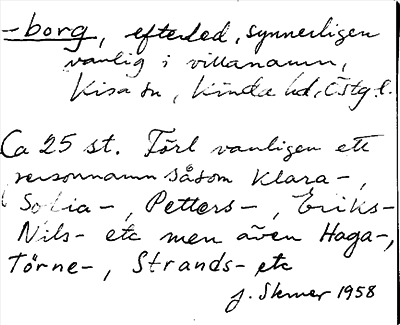 -borg, efterled, synnerligen
vanlig i villanamn,
Kisa sn, Kinda hd, Östgl.
Ca 25 st. Förl vanligen ett
personnamn såsom Klara-,
Sofia-, Petters-, Eriks-
Nils- etc men även Haga-,
Törne-, Strands- etc
J. Skmer 1958